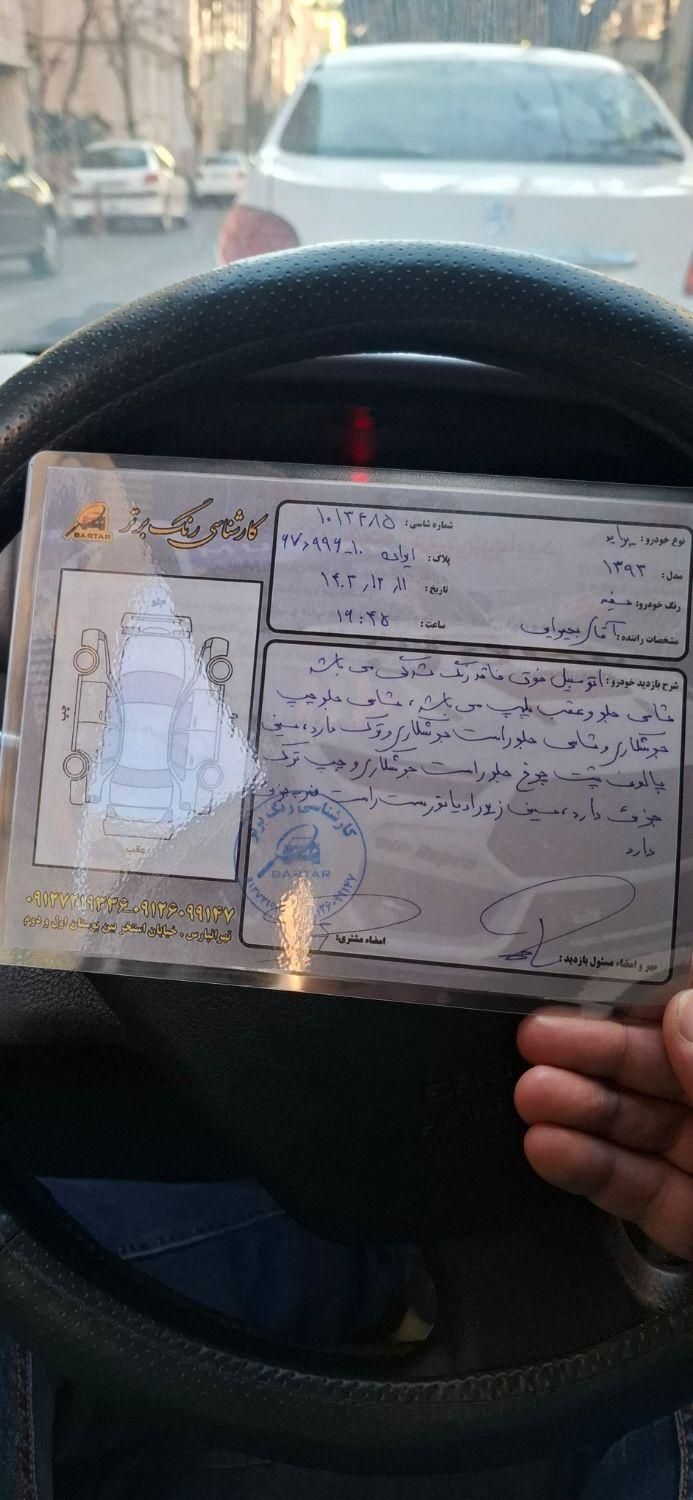 کارشناسی رنگ برتر
BARTAR
نوع خودرو: پراید
شماره شاسی: ۱۰۱۳۴۸۵
مدل: ۱۳۹۳
پلاک: ایران ۱۰-
رنگ خودرو: سفید
تاریخ: ۱۴۰۳/۱۲/۱۱
مشخصات راننده: آقای
ساعت: ۱۹:۴۵
شرح بازدید خودرو: اتومبیل فوق فاقد رنگ شدگی می باشد
شاسی جلو و عقب پلمپ می باشد، شاسی جلو چپ
جوشکاری و شاسی جلو راست جوشکاری و ترک دارد، سینی
پشت چرغ جلو راست جوشکاری و چپ ترک
جزئی دارد، سینی زیر رادیاتور سمت راست ضربه
دارد
جلو
چپ
عقب
کارشناسی رنگ برتر
BARTAR
۰۹۱۲۷۲۱۹۳۴۶-۰۹۱۲۶۰۹۹۱۴۷
تهرانپارس . خیابان استخر بین بوستان اول و دوم
امضاء مشتری:
مهر و امضاء مسئول بازدید: